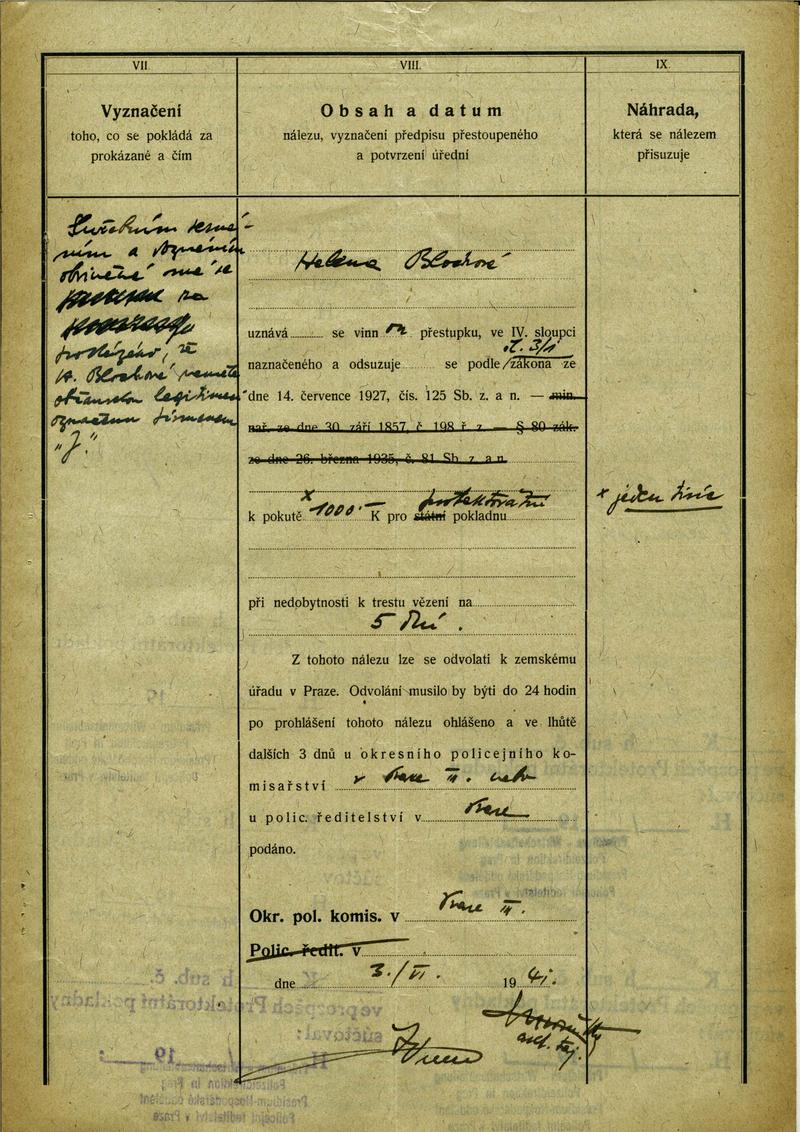 VII.
Vyznačení
toho, co se pokládá za
prokázané a čím
VIII.
Obsah a datum
nálezu, vyznačení předpisu přestoupeného
a potvrzení úřední
IX.
Náhrada,
která se nálezem
přisuzuje
Služebním
a doznáním
obviněné má se
za
že
H. Blochová neměla
občanskou legitimaci
označenou písmenem
"J."
Helena Blochová
uznává se vinn ou přestupku, ve IV. sloupci
čl. 3/1
naznačeného a odsuzuje se podle / zákona ze
dne 14. července 1927, čís. 125 Sb. z. a n. — min.
nař. ze dne 30. září 1857, č. 198 ř. z. — § 80 zák.
ze dne 26. března 1935, č. 81 Sb. z. a n.
x protektorátní
k pokutě 1000.— K pro státní pokladnu
x jeden tisíc
při nedobytnosti k trestu vězení na
5 dní.
Z tohoto nálezu lze se odvolati k zemskému
úřadu v Praze. Odvolání musilo by býti do 24 hodin
po prohlášení tohoto nálezu ohlášeno a ve lhůtě
dalších 3 dnů u okresního policejního ko-
misařství v Praze III. nebo
u polic. ředitelství v Praze
podáno.
Okr. pol. komis. v Praze III.
Polic. ředit. v
dne 3./VI. 1941.